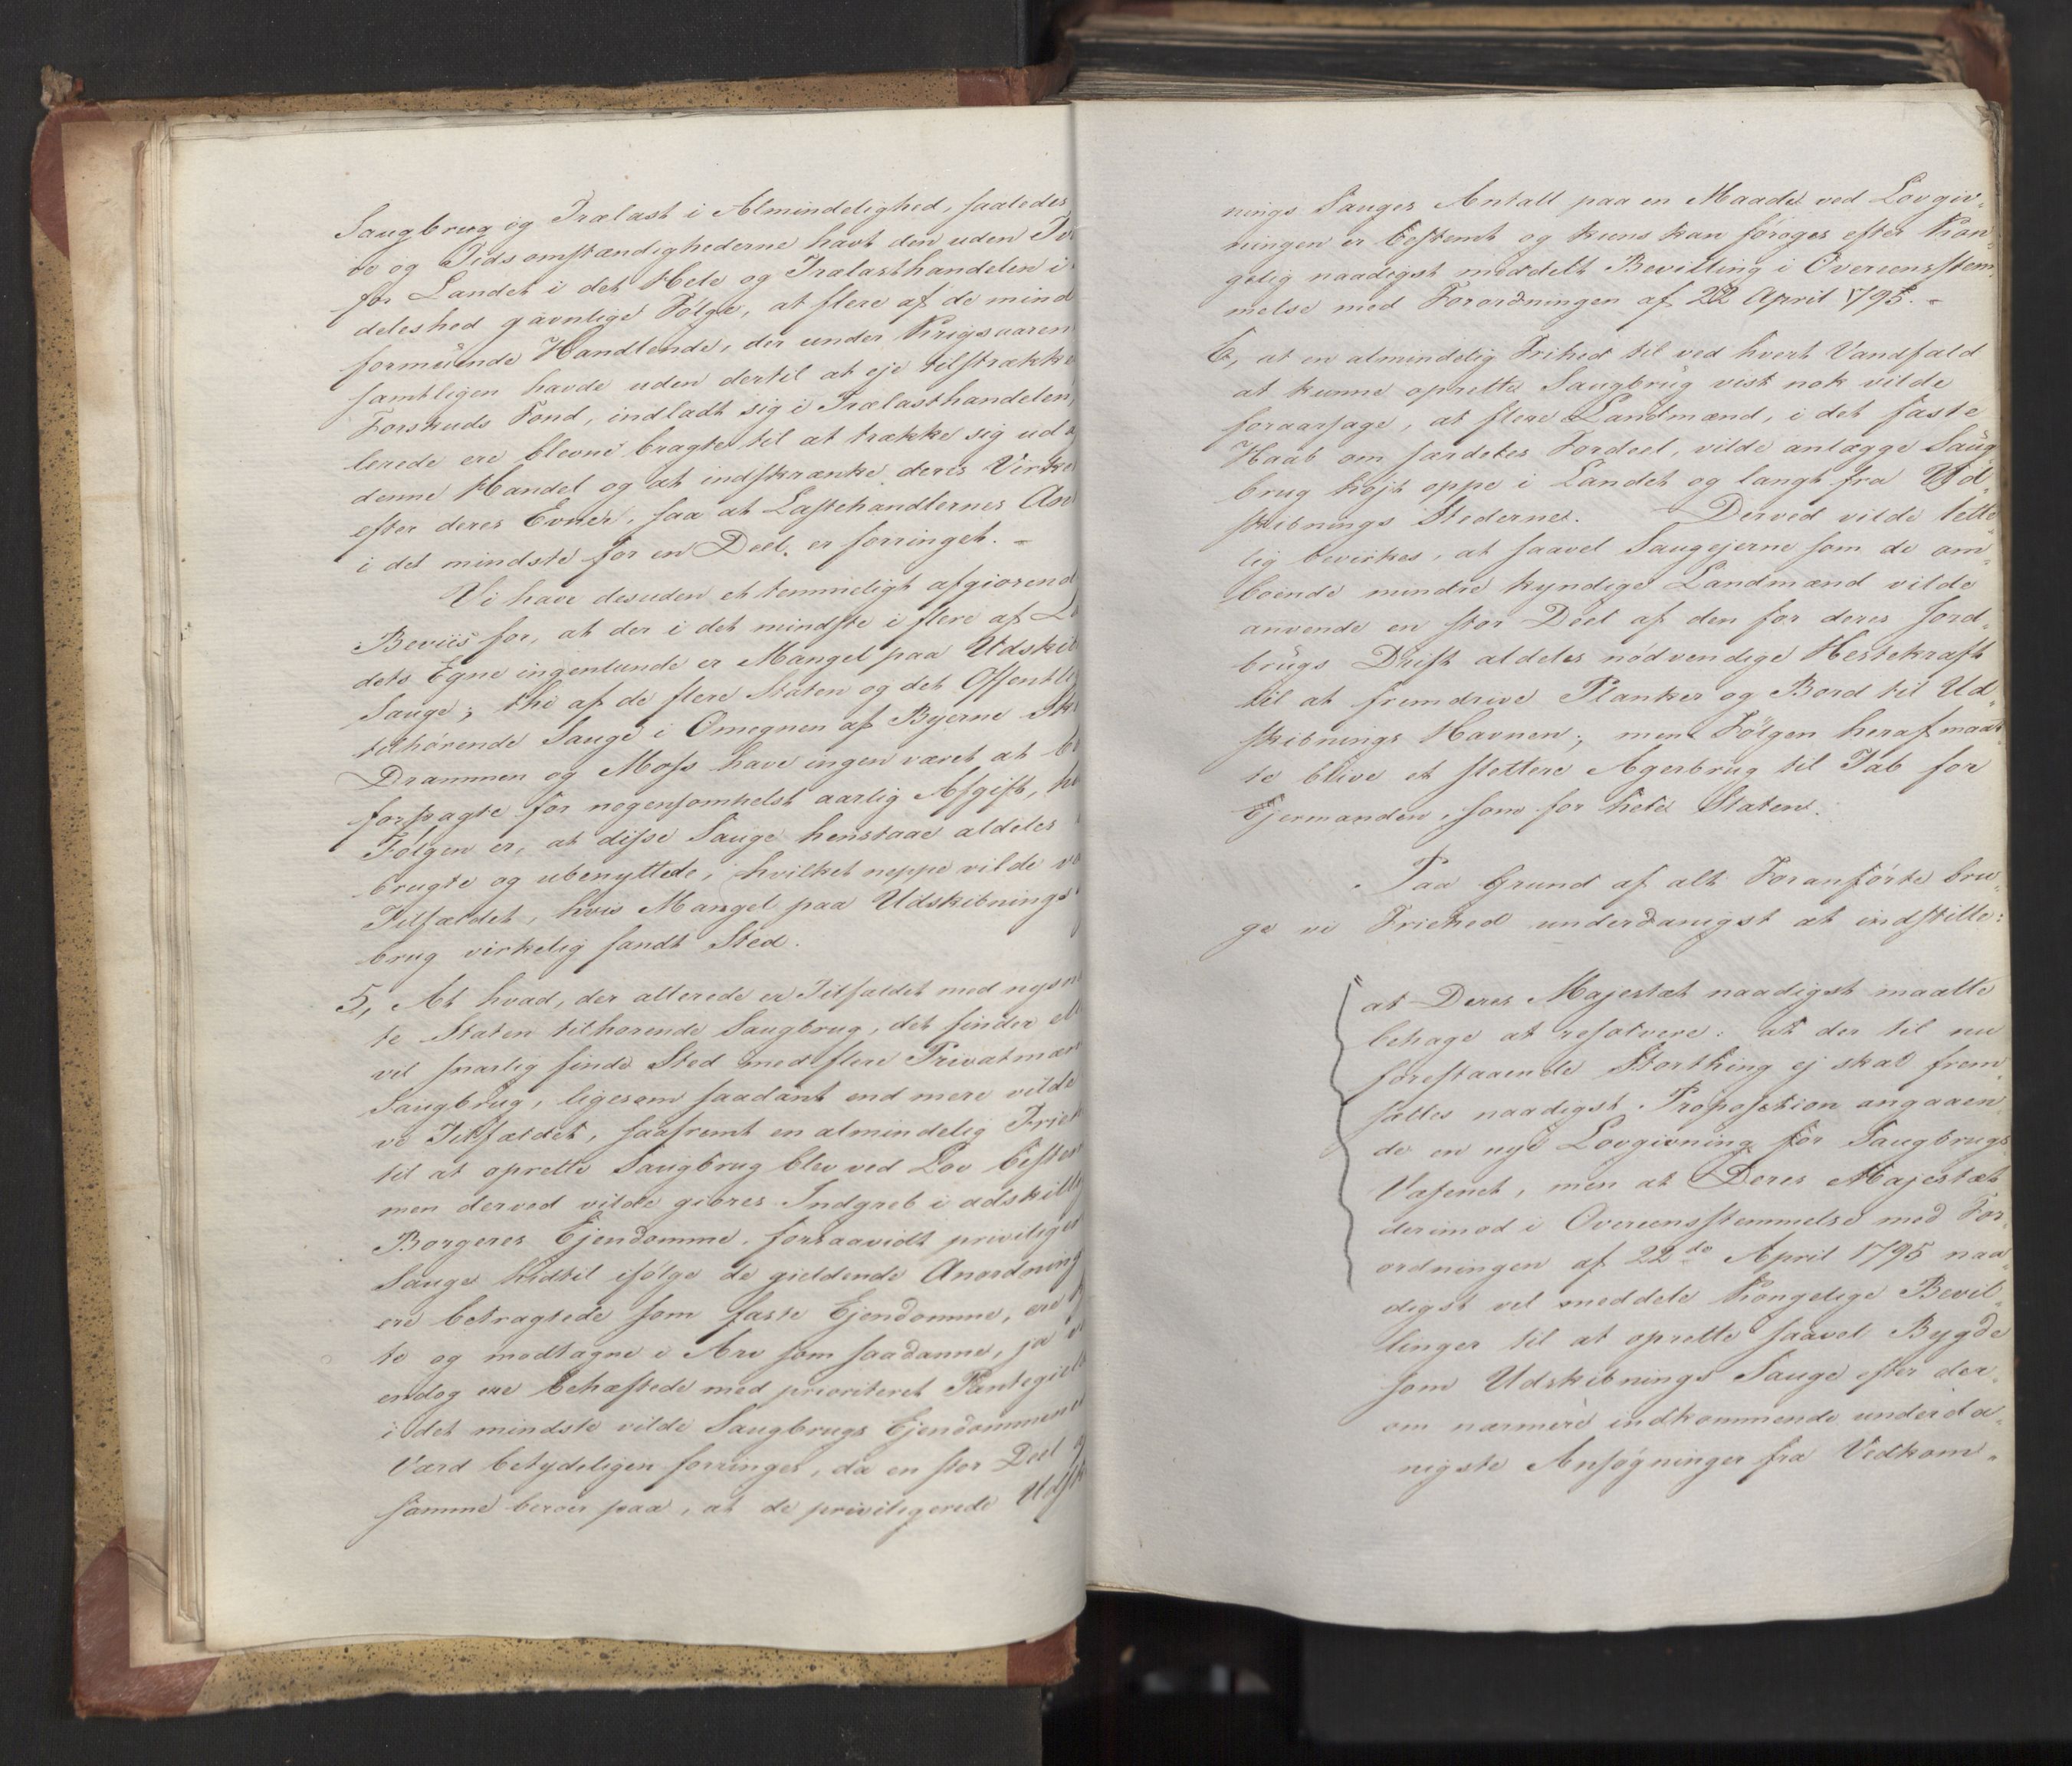 Saugbrug og Trælast i Almindelighed, saaledes
og Tidsomstændighederne havt den uden
for Landet i det Hele og Trælasthandelen i
deleshed gavnlige Følge, at flere af de mind
formuende Handlende, der under Krigsaaren
samtligen havde uden dertil at eje tilstrække
Forskuds Fond, indladt sig i Trælasthandelen,
lerede ere blevne bragte til at trække sig ud
denne Handel og at indskrænke deres Virke
efter deres Evner, saa at Lastehandlernes An
i det mindste for en Deel, er forringet. –
Vi have desuden et temmeligt afgiørend
Beviis for, at der i det mindste i flere af
dets Egne ingenlunde er Mangel paa Udskib
Sauge; thi af de flere Staten og det Offentlig
tilhørende Sauge i Omegnen af Byerne
Drammen og Moss have ingen været at
forpagte for nogensomhelst aarlig Afgift,
Følgen er, at disse Sauge henstaae aldeles
brugte og ubenyttede, hvilket neppe vilde
Tilfældet, hvis Mangel paa Udskibnings
brug virkelig fandt Sted.
5, At hvad, der allerede er Tilfældet med
te Staten tilhørende Saugbrug, det finder
vil snarlig finde Sted med flere Privatmæn
Saugbrug, ligesom saadant end mere vilde
ve Tilfældet, saafremt en almindelig
til at oprette Saugbrug blev ved Lov bestem
men derved vilde giøres Indgreb i adskillige
Borgeres Ejendomme, forsaavidt priviliger
Sauge hidtil ifølge de gieldende Anordning
ere betragtede som faste Ejendomme, ere
te og modtagne i Arv som saadanne, ja
endog ere behæftede med prioriteret Pantegield
i det mindste vilde Saugbrugs Ejendommen
Værd betydeligen forringes, da en stor Deel
samme beroer paa, at de priviligerede Udsk
nings Sauges Antall paa en Maade ved Lovgiv-
ningen er bestemt og kuns kan forøges efter Kon-
gelig naadigst meddelt Bevilling i Overeensstem-
melse med Forordningen af 22 April 1795. –
6, at en almindelig Frihed til ved hvert Vandfald
at kunne oprette Saugbrug vist nok vilde
foraarsage, at flere Landmænd, i det faste
Haab om særdeles Fordeel, vilde anlægge Saug-
brug højt oppe i Landet og langt fra Ud-
skibnings Stederne. Derved vilde lette-
lig bevirkes, at saavel Saugejerne som de om-
boende mindre kyndige Landmænd vilde
anvende en stor Deel af den for deres Jord-
brugs Drift aldeles nødvendige Hestekraft
til at fremdrive Planker og Bord til Ud-
skibnings Havnen; men Følgen heraf maat-
te blive et slettere Agerbrug til Tab for
Ejermanden, som for hele Staten.
Paa Grund af alt Foranførte bru-
ge vi Friehed underdanigst at indstille:
at Deres Majestæt naadigst maatte
behage at resolvere: at der til nu
forestaaende Storthing ej skal frem-
sættes naadigst Proposition angaaen-
de en nye Lovgivning for Saugbrugs
Væsenet, men at Deres Majestæt
derimod i Overeensstemmelse med For-
ordningen af 22de April 1795 naa-
digst vil meddele Kongelige Bevil-
linger til at oprette saavel Bygde
som Udskibnings Sauge efter der-
om nærmere indkommende underda-
nigste Ansøgninger fra Vedkom-